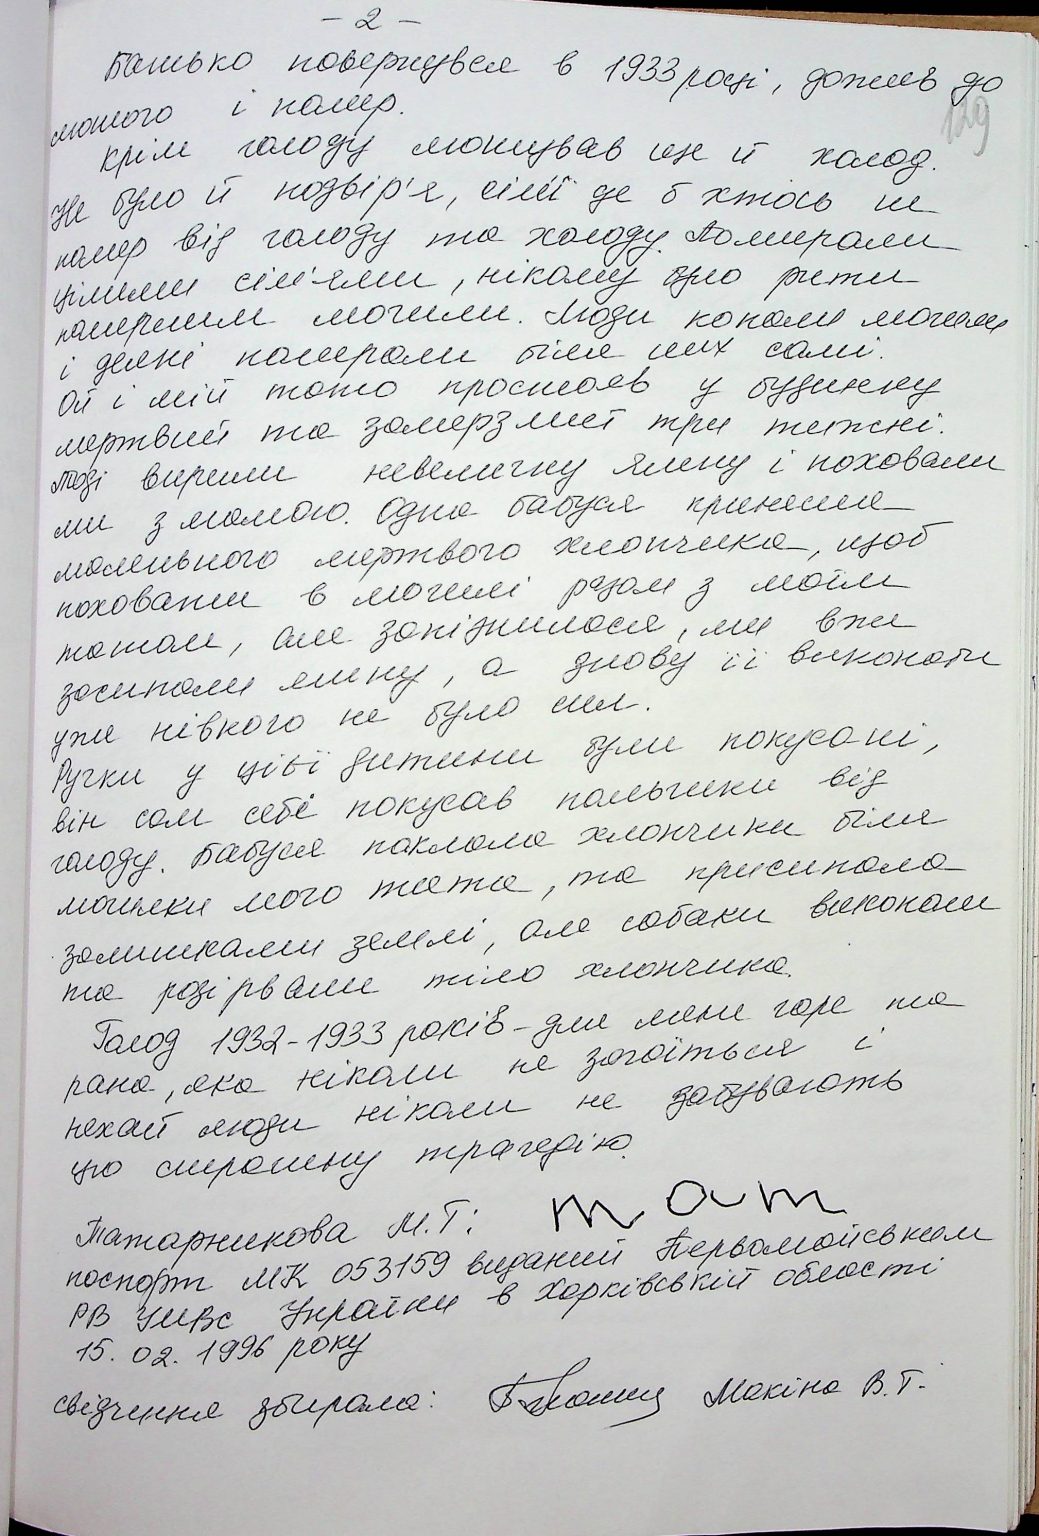 - 2 -
Батько повернувся в 1933 році, дожив до
129
лютого і помер.
Крім голоду лютував ще й холод.
Не було й подвір'я, сім'ї де б хтось не
помер від голоду та холоду. Помирали
цілими сім'ями, нікому було рити
померлим могили. Люди копали могили
і деякі помирали біля них самі.
Ой і мій тато пролежав у будинку
мертвий та замерзлий три тижні.
Тоді вирили невеличку ямку і поховали
ми з мамою. Одна бабуся принесла
маленького мертвого хлопчика, щоб
поховати в могилі разом з моїм
татом, але запізнилася, ми вже
засипали ямку, а знову її викопати
уже нівкого не було сил.
Ручки у цієї дитини були покусані,
він сам себе покусав пальчики від
голоду. Бабуся поклала хлопчика біля
могилки мого тата, та присипала
залишками землі, але собаки викопали
та розірвали тіло хлопчика.
Голод 1932-1933 років - для мене горе та
рана, яка ніколи не загоїться і
нехай люди ніколи не забувають
цю страшну трагедію.
Татарникова М.Т: тат
паспорт МК 053159 виданий Первомайським
РВ УМВС України в Харківській області
15. 02. 1996 року
свідчення збирала: Макіна В.Г.